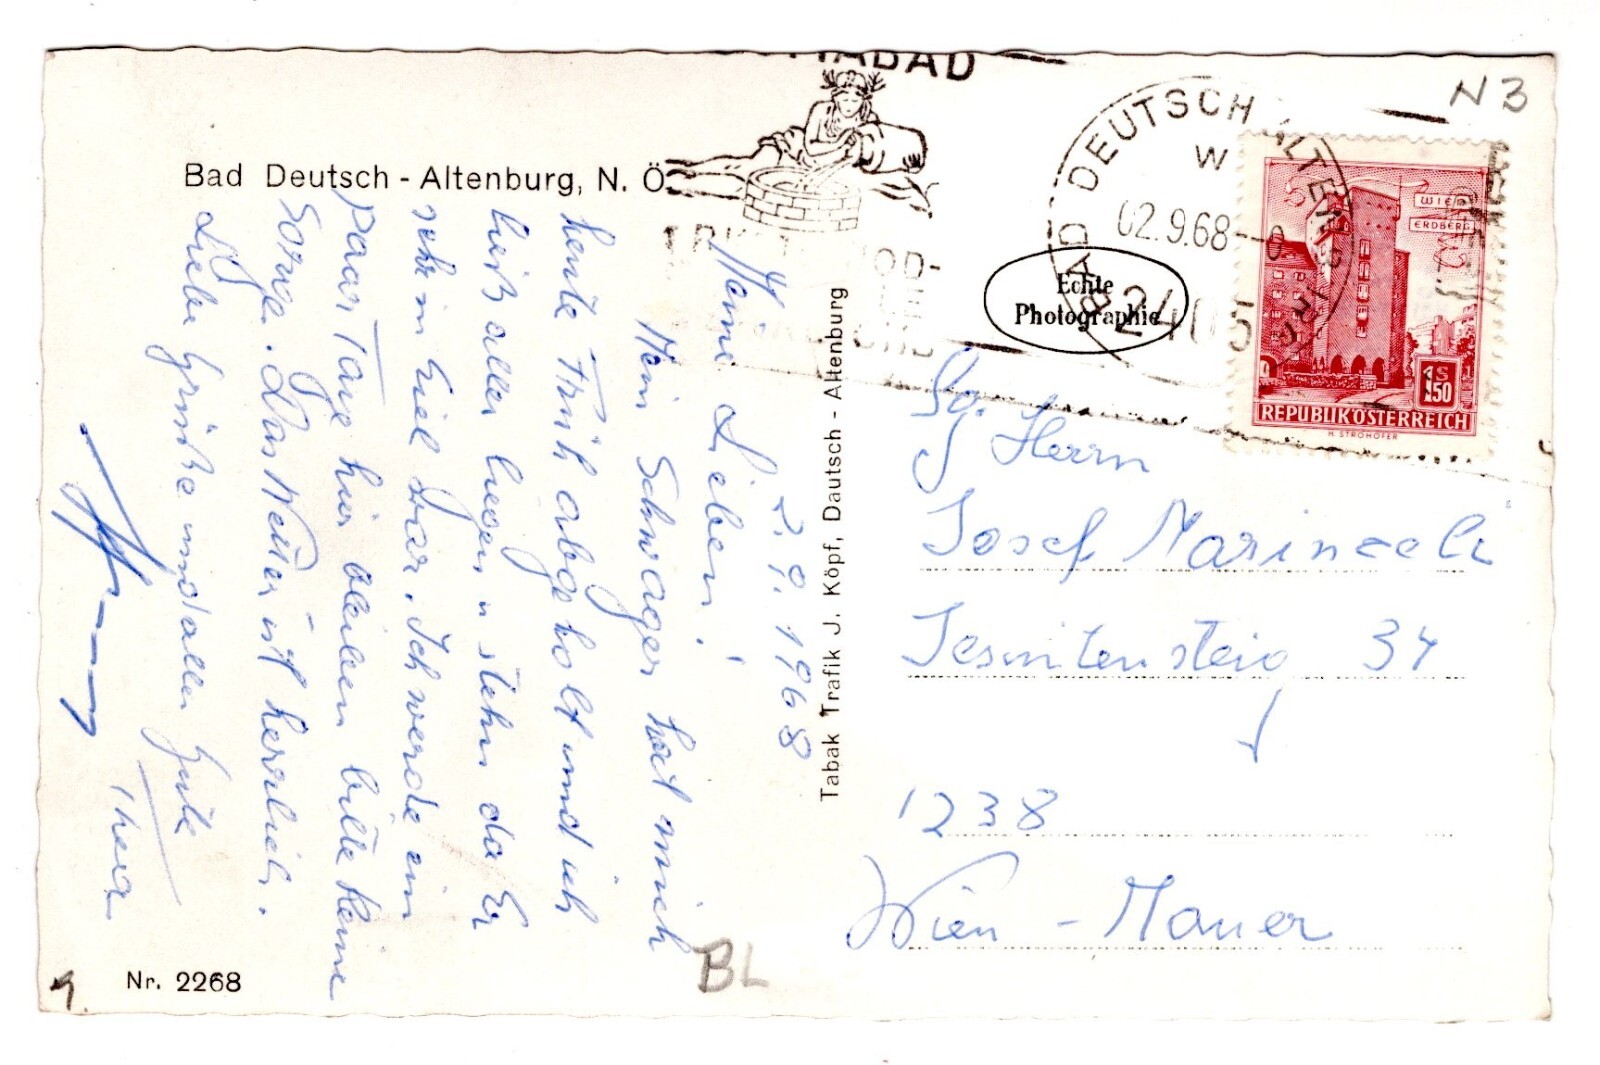 Bad Deutsch - Altenburg, N. Ö.
2. 9. 1968
Meine Lieben!
Mein Schwager hat mich
heute Früh abgeholt und ich
ließ alles liegen u stehn da Er
sehr in Eiel war. Ich werde ein
paar Tage hier bleiben bitte keine
Sorge. Das Wetter ist herrlich.
Liebe Grüße und alles Gute
Nr. 2268
Tabak Trafik J. Köpf, Dautsch - Altenburg
BAD DEUTSCH ALTENBURG
W
02.9.68
2405
Echte
Photographie
WIEN
ERDBERG
S
1.50
REPUBLIK ÖSTERREICH
H. STROHOFER
N3
Sg. Herrn
Josef Marinceli
Jesuitensteig 34
1238
Wien - Mauer
BL